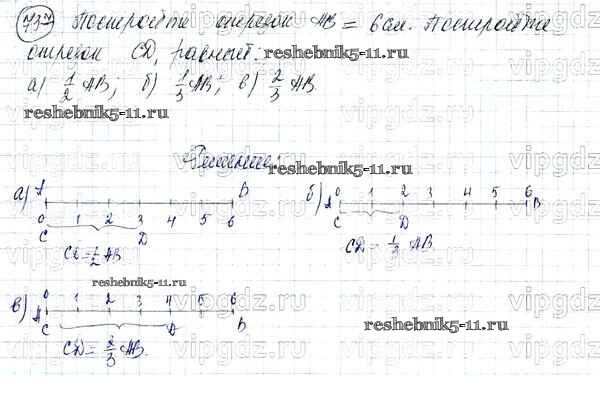 737 Постройте отрезок AB = 6 см. Постройте
отрезок CD, равный:
reshebnik5-11.ru
а) 1/2 AB; б) 1/3 AB; в) 2/3 AB.
reshebnik5-11.ru
vipgdz.ru
Решение:
reshebnik5-11.ru
а) A B
0 1 2 3 4 5 6
C D
CD = 1/2 AB
б) A 0 1 2 3 4 5 6 B
C D
CD = 1/3 AB
reshebnik5-11.ru
в) A 0 1 2 3 4 5 6 B
C D
CD = 2/3 AB.
reshebnik5-11.ru
vipgdz.ru